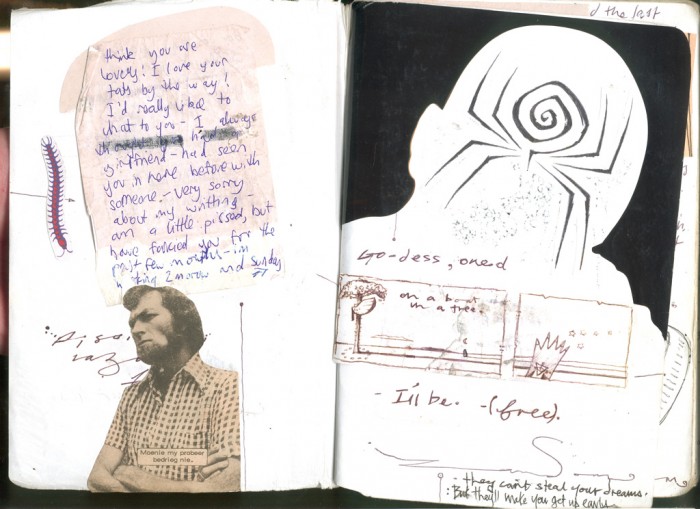 think you are
lovely! I love your
tats by the way!
I'd really liked to
chat to you - I always
had
girlfriend - had seen
you in here before with
someone. - very sorry
about my writing
am a little pissed, but
have for the
past few months - i'm
2morow and sunday
Moenie my probeer
bedrieg nie.
d the last
Go-dess, one d
on a boat
in a tree.
- I'll be. - (free).
- they can't steal your dreams.
: But they'll make you get up early